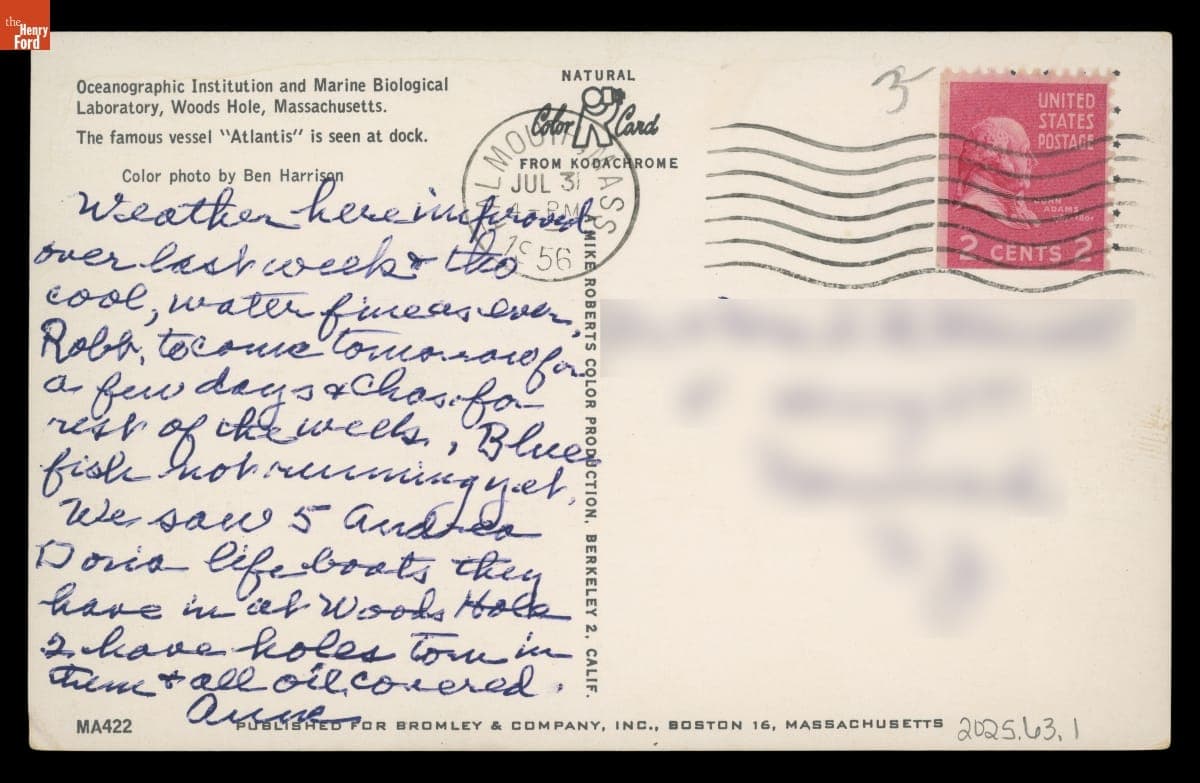 the
Henry
Ford
Oceanographic Institution and Marine Biological
Laboratory, Woods Hole, Massachusetts.
The famous vessel "Atlantis" is seen at dock.
Color photo by Ben Harrison
Weather here improved
over last week & tho
cool, water fine as ever.
Robb. to come tomorrow for
a few days & Chas. for
rest of the week, Blue
fish not running yet.
We saw 5 Andrea
Doria life boats they
have in at Woods Hole
2 have holes torn in
them & all oil covered.
Anne
MA422
NATURAL
Color Card
FROM KODACHROME
FALMOUTH, MASS
JUL 31
4-PM
1956
MIKE ROBERTS COLOR PRODUCTION, BERKELEY 2, CALIF.
3
UNITED
STATES
POSTAGE
JOHN
ADAMS
2 CENTS 2
PUBLISHED FOR BROMLEY & COMPANY, INC., BOSTON 16, MASSACHUSETTS
2025.63.1